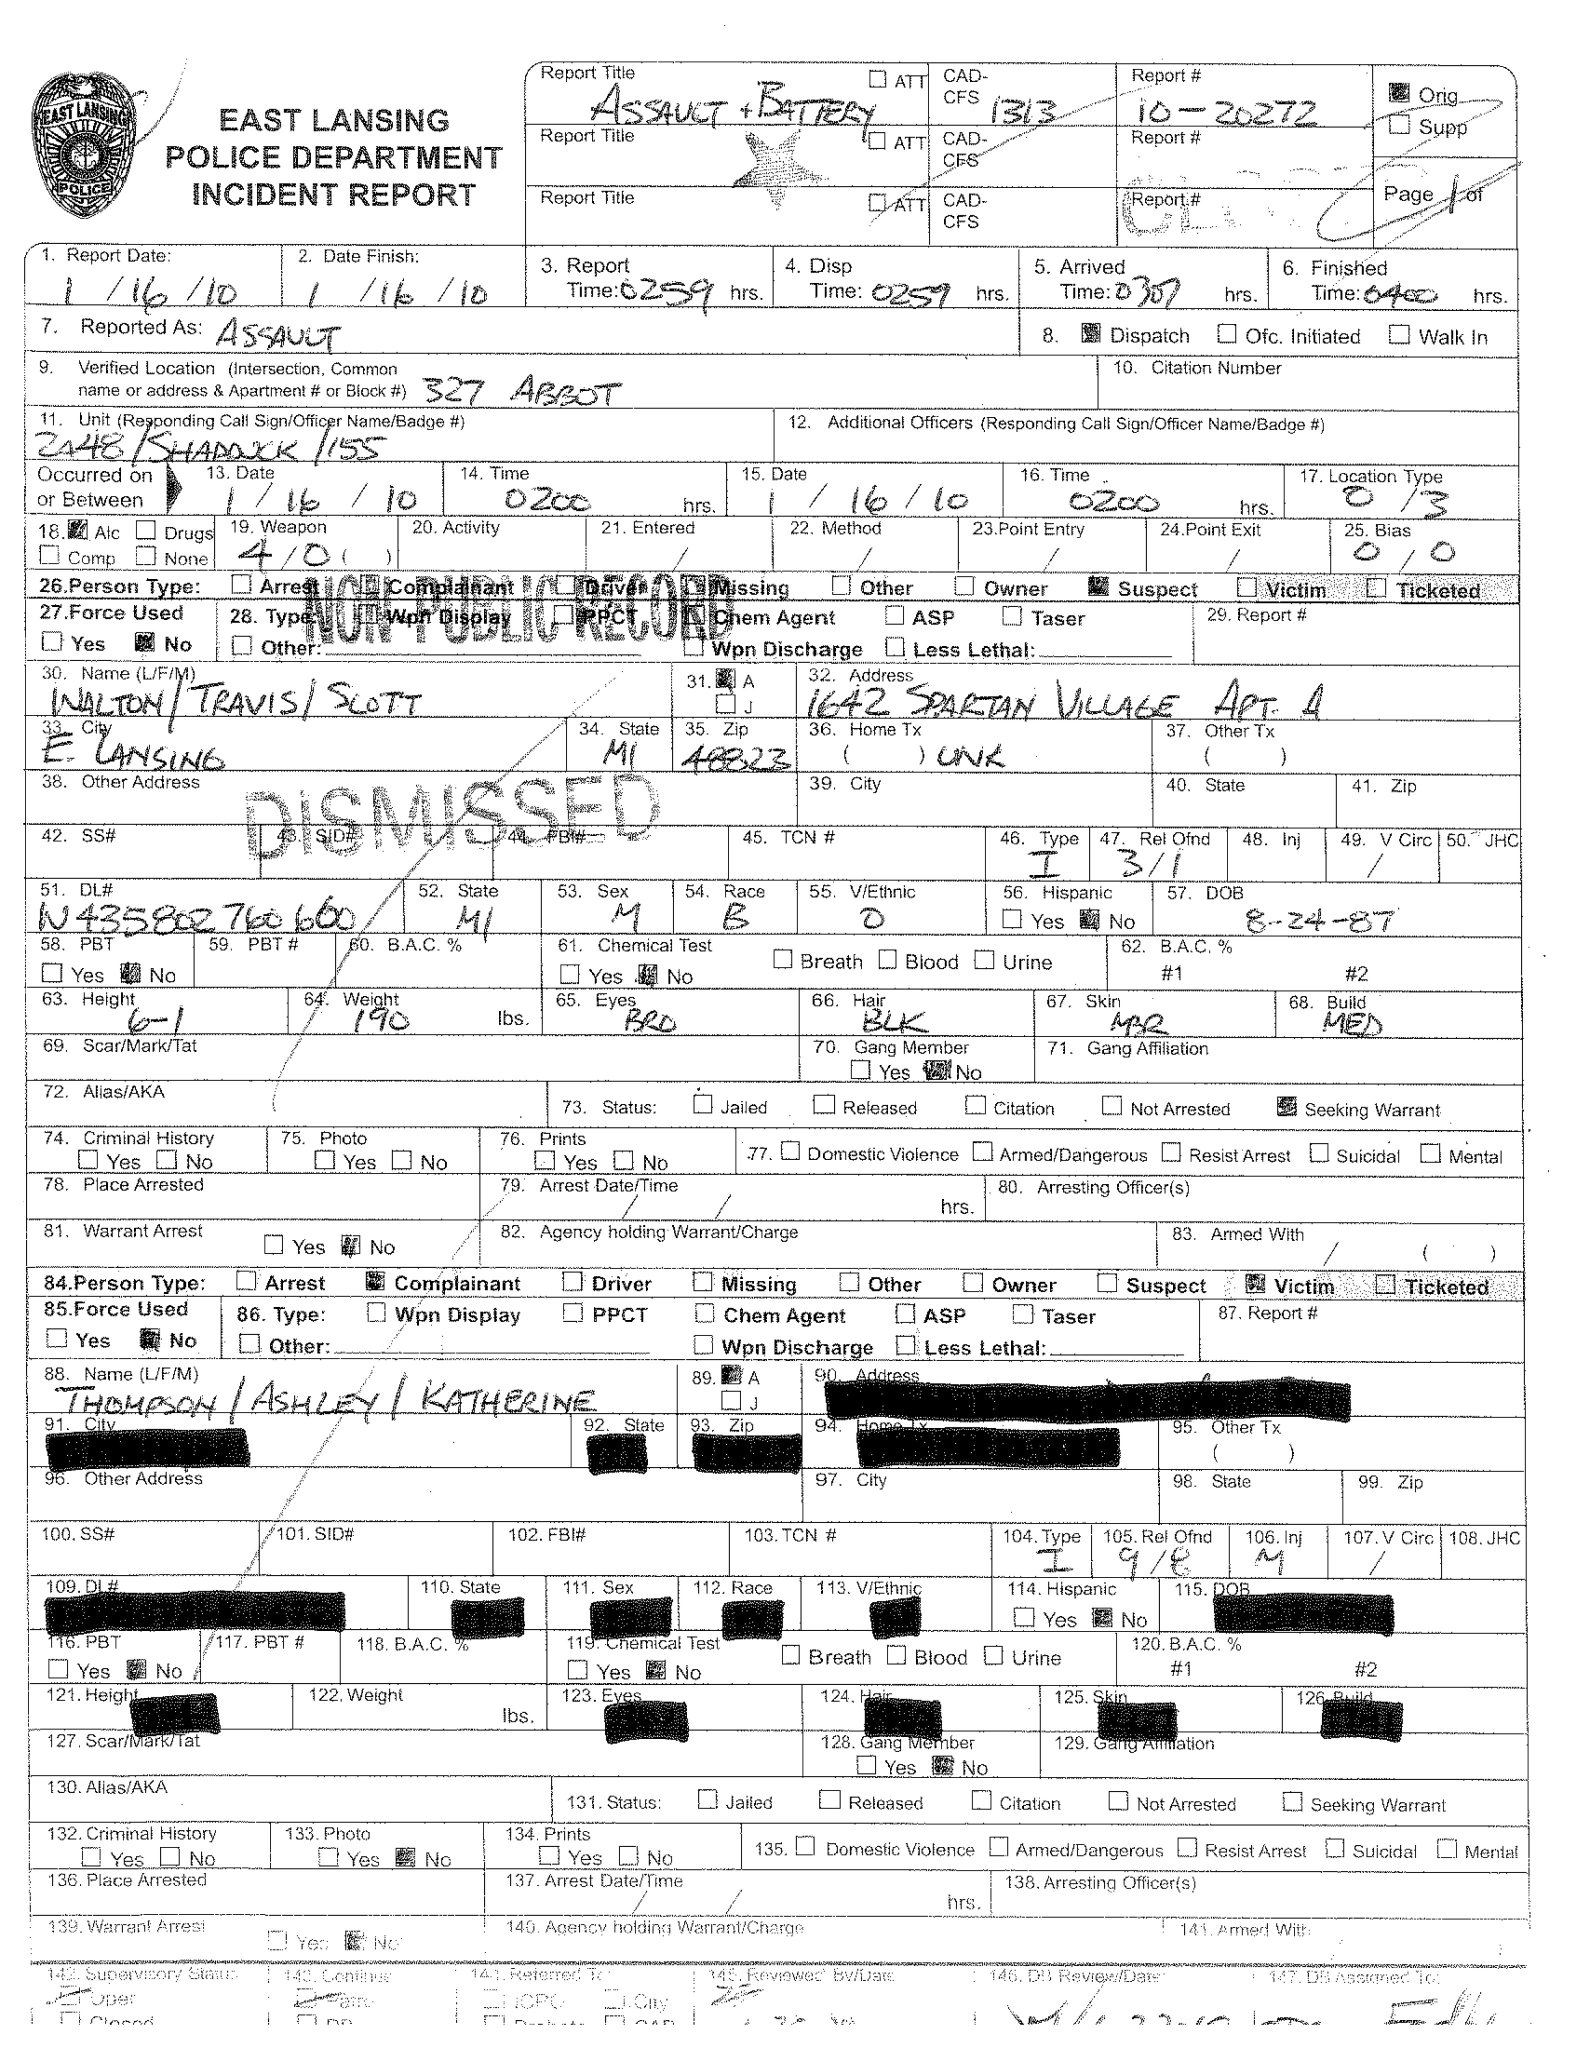 EAST LANSING
POLICE
EAST LANSING
POLICE DEPARTMENT
INCIDENT REPORT
Report Title ☐ ATT CAD-CFS Report #
ASSAULT + BATTERY 1313 10-20272
Orig
Supp
Report Title ☐ ATT CAD-CFS Report #
Report Title ☐ ATT CAD-CFS Report #
Page 1 of
1. Report Date: 2. Date Finish: 3. Report 4. Disp 5. Arrived 6. Finished
1/16/10 1/16/10 Time: 0259 hrs. Time: 0259 hrs. Time: 0307 hrs. Time: 0400 hrs.
7. Reported As: ASSAULT 8. Dispatch ☐ Ofc. Initiated ☐ Walk In
9. Verified Location (Intersection, Common 10. Citation Number
name or address & Apartment # or Block #) 327 ABBOT
11. Unit (Responding Call Sign/Officer Name/Badge #) 12. Additional Officers (Responding Call Sign/Officer Name/Badge #)
2A48/SHADDUCK/155
Occurred on 13. Date 14. Time 15. Date 16. Time 17. Location Type
or Between 1/16/10 0200 hrs. 1/16/10 0200 hrs. 0/3
18. Alc ☐ Drugs 19. Weapon 20. Activity 21. Entered 22. Method 23.Point Entry 24.Point Exit 25. Bias
☐ Comp ☐ None 4/0 ( ) / / / / 0/0
26.Person Type: ☐ Arrest Complainant Driver Missing ☐ Other ☐ Owner Suspect ☐ Victim ☐ Ticketed
NON-PUBLIC RECORD
27.Force Used 28. Type: Wpn Display PPCT Chem Agent ☐ ASP ☐ Taser 29. Report #
☐ Yes No ☐ Other: Wpn Discharge ☐ Less Lethal:
30. Name (L/F/M) 31. A 32. Address
WALTON/TRAVIS/SCOTT ☐ J 1642 SPARTAN VILLAGE APT. A
33. City 34. State 35. Zip 36. Home Tx 37. Other Tx
E. LANSING MI 48823 ( ) UNK ( )
38. Other Address 39. City 40. State 41. Zip
DISMISSED
42. SS# 43. SID# 44. FBI# 45. TCN # 46. Type 47. Rel Ofnd 48. Inj 49. V Circ 50. JHC
I 3/1 /
51. DL# 52. State 53. Sex 54. Race 55. V/Ethnic 56. Hispanic 57. DOB
W435802760660 MI M B O ☐ Yes No 8-24-87
58. PBT 59. PBT # 60. B.A.C. % 61. Chemical Test ☐ Breath ☐ Blood ☐ Urine 62. B.A.C. %
☐ Yes No ☐ Yes No #1 #2
63. Height 64. Weight 65. Eyes 66. Hair 67. Skin 68. Build
6-1 190 lbs. BRO BLK MBR MED
69. Scar/Mark/Tat 70. Gang Member 71. Gang Affiliation
☐ Yes No
72. Alias/AKA 73. Status: ☐ Jailed ☐ Released ☐ Citation ☐ Not Arrested Seeking Warrant
74. Criminal History 75. Photo 76. Prints 77. ☐ Domestic Violence ☐ Armed/Dangerous ☐ Resist Arrest ☐ Suicidal ☐ Mental
☐ Yes ☐ No ☐ Yes ☐ No ☐ Yes ☐ No
78. Place Arrested 79. Arrest Date/Time 80. Arresting Officer(s)
/ / hrs.
81. Warrant Arrest 82. Agency holding Warrant/Charge 83. Armed With
☐ Yes No / ( )
84.Person Type: ☐ Arrest Complainant ☐ Driver ☐ Missing ☐ Other ☐ Owner ☐ Suspect Victim ☐ Ticketed
85.Force Used 86. Type: ☐ Wpn Display ☐ PPCT ☐ Chem Agent ☐ ASP ☐ Taser 87. Report #
☐ Yes No ☐ Other: ☐ Wpn Discharge ☐ Less Lethal:
88. Name (L/F/M) 89. A 90. Address
THOMPSON/ASHLEY/KATHERINE ☐ J
91. City 92. State 93. Zip 94. Home Tx 95. Other Tx
( )
96. Other Address 97. City 98. State 99. Zip
100. SS# 101. SID# 102. FBI# 103. TCN # 104. Type 105. Rel Ofnd 106. Inj 107. V Circ 108. JHC
I 9/8 M /
109. DL# 110. State 111. Sex 112. Race 113. V/Ethnic 114. Hispanic 115. DOB
☐ Yes No
116. PBT 117. PBT # 118. B.A.C. % 119. Chemical Test ☐ Breath ☐ Blood ☐ Urine 120. B.A.C. %
☐ Yes No ☐ Yes No #1 #2
121. Height 122. Weight 123. Eyes 124. Hair 125. Skin 126. Build
lbs.
127. Scar/Mark/Tat 128. Gang Member 129. Gang Affiliation
☐ Yes No
130. Alias/AKA 131. Status: ☐ Jailed ☐ Released ☐ Citation ☐ Not Arrested ☐ Seeking Warrant
132. Criminal History 133. Photo 134. Prints 135. ☐ Domestic Violence ☐ Armed/Dangerous ☐ Resist Arrest ☐ Suicidal ☐ Mental
☐ Yes ☐ No ☐ Yes No ☐ Yes ☐ No
136. Place Arrested 137. Arrest Date/Time 138. Arresting Officer(s)
/ / hrs.
139. Warrant Arrest 140. Agency holding Warrant/Charge 141. Armed With
☐ Yes No
142. Supervisory Status 143. Continue 144. Referred To 145. Reviewed By/Date 146. DB Review/Date 147. DB Assigned To:
Open Patrol City
Closed